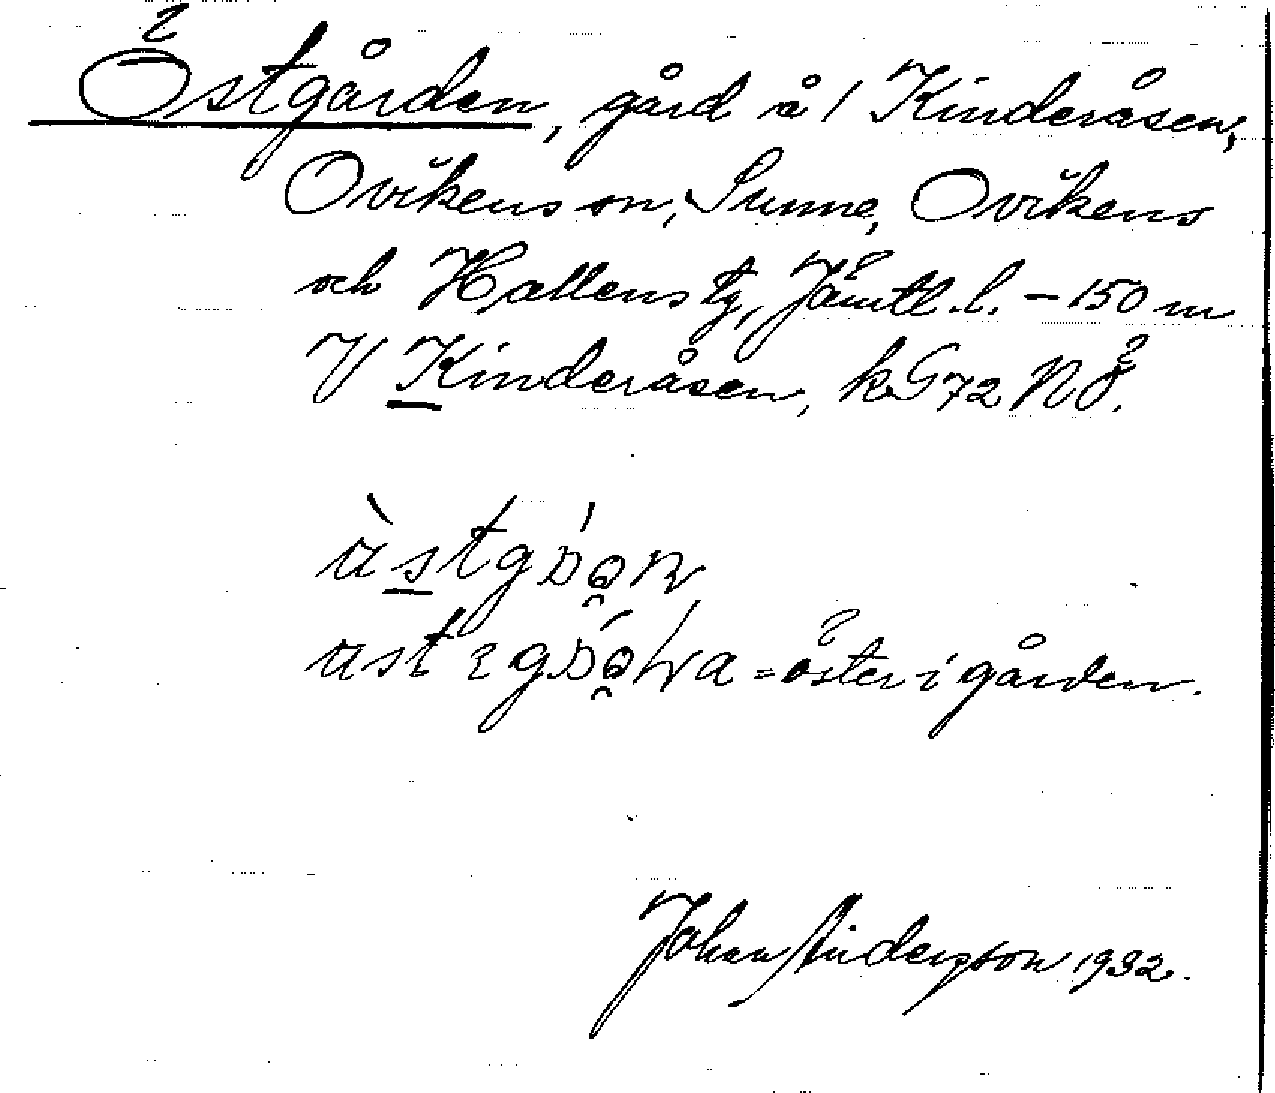 Östgården, gård å 1 Kinderåsen,
Ovikens sn, Sunne, Ovikens
och Hallens tg, Jämtl. l. – 150 m
V/ Kinderåsen, kG72 NÖ.
= öster i gården.
Johan Anderson 1932.